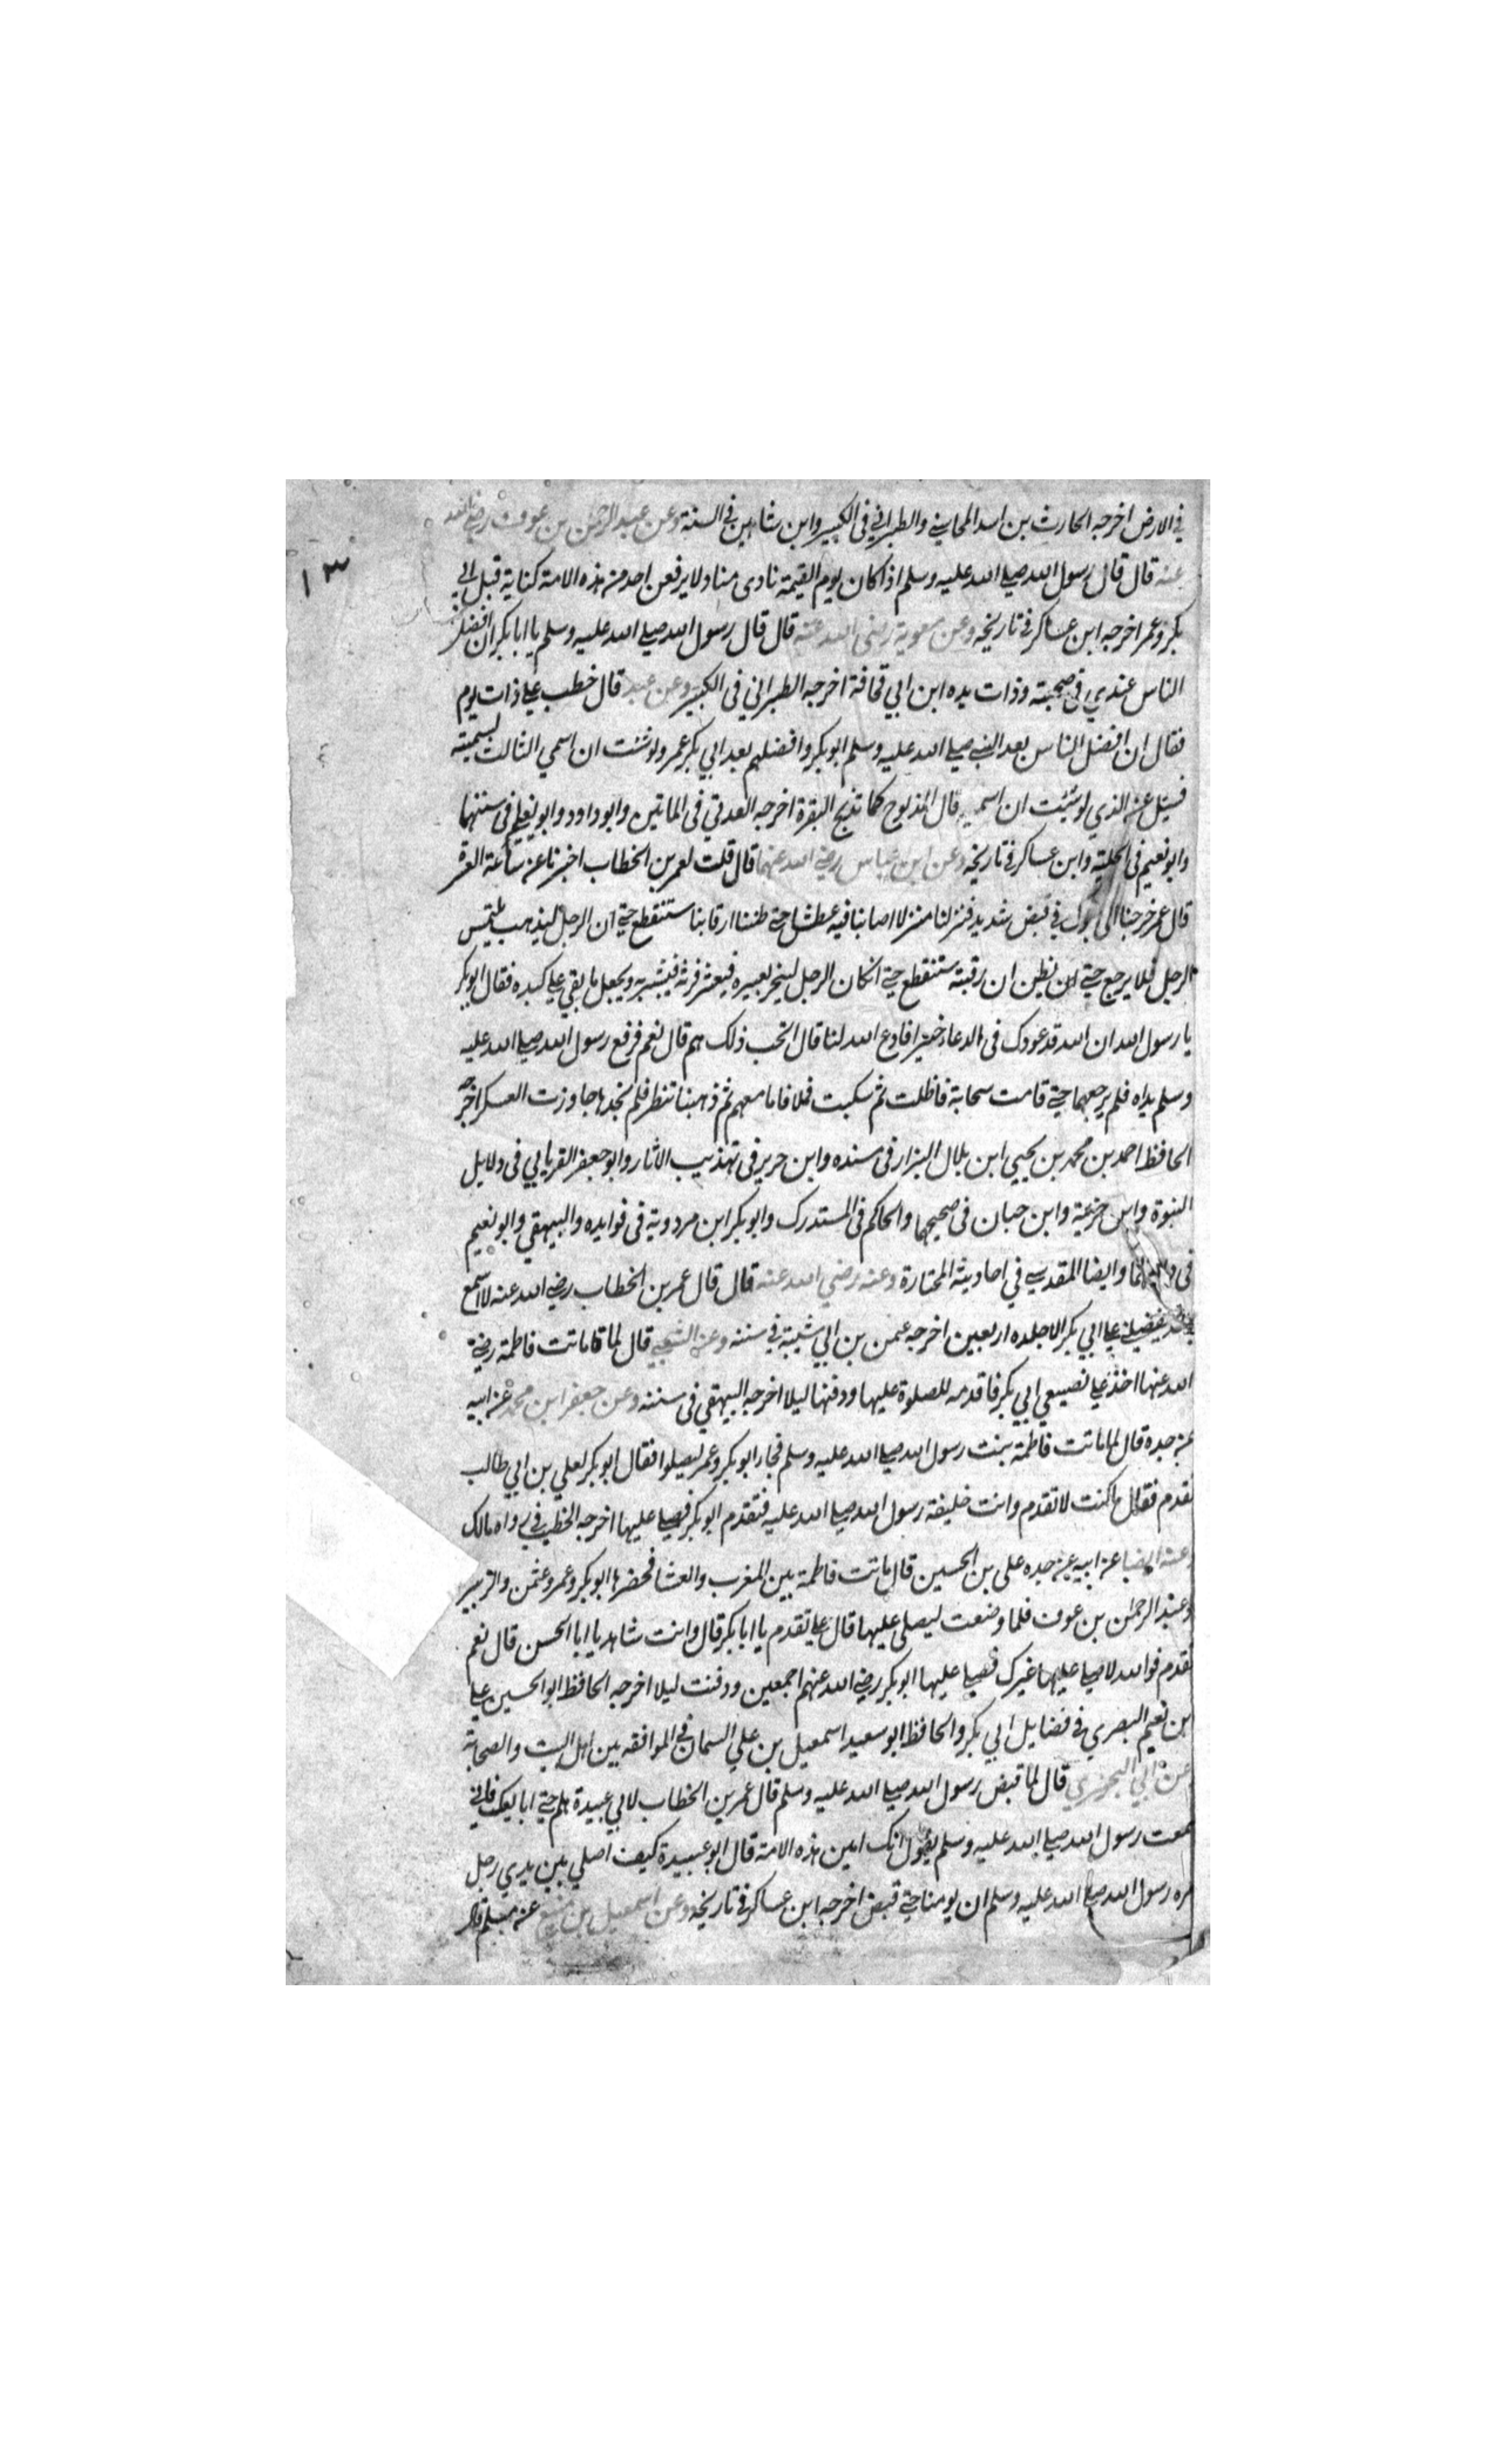 في الارض اخرجه الحارث بن اسد المحاسبي والطبراني في الكبير وابن شاهين في السنة وعن عبد الرحمن بن عوف رضي الله
١٣
عنه قال قال رسول الله صلى الله عليه وسلم اذا كان يوم القيمة نادى مناد لا يرفعن احد من هذه الامة كتابه قبل ابي
بكر وعمر اخرجه ابن عساكر في تاريخه وعن معوية رضى الله عنه قال قال رسول الله صلى الله عليه وسلم يا ابا بكر ان افضل
الناس عندي في صحبته وذات يده ابن ابي قحافة اخرجه الطبراني في الكبير وعن عبد قال خطب علي ذات يوم
فقال ان افضل الناس بعد النبي صلى الله عليه وسلم ابو بكر وافضلهم بعد ابي بكر عمر ولو شئت ان اسمي الثالث لسميته
فسئل عن الذي لو شئت ان اسميه قال المذبوح كما تذبح البقرة اخرجه العدني في الماتين وابو داود وابو يعلى في سننهما
وابو نعيم في الحلية وابن عساكر في تاريخه وعن ابن عباس رضي الله عنهما قال قلت لعمر بن الخطاب اخبرنا عن ساعة العسرة
قال عمر خرجنا الى تبوك في قيض شديد فنزلنا منزلا اصابنا فيه عطش حتى ظننا ارقابنا ستنقطع حتى ان الرجل ليذهب يلتمس
الرجل فلا يرجع حتى ان نظن ان رقبته ستنقطع حتى ان كان الرجل لينحر بعيره فيعثر فرثه فيشربه ويجعل ما بقي على كبده فقال ابو بكر
يا رسول الله ان الله قد عودك في الدعاء خيرا فادع الله لنا قال اتحب ذلك هم قال نعم فرفع رسول الله صلى الله عليه
وسلم يداه فلم يرجعهما حتى قامت سحابة فاظلت ثم سكبت فملا فاما معهم ثم ذهبنا ننظر فلم نجدها جاوزت العسكر اخرجه
الحافظ احمد بن محمد بن يحيي ابن بلال البزار في مسنده وابن جرير في تهذيب الاثار وابو جعفر الفريابي في دلايل
النبوة وابن خزيمة وابن حبان في صحيحهما والحاكم في المستدرك وابو بكر ابن مردوية في فوايده والبيهقي وابو نعيم
في وايضا المقدسي في احاديثه المختارة وعنه رضي الله عنه قال قال عمر بن الخطاب رضي الله عنه لا اسمع
يفضلني على ابي بكر الا جلده اربعين اخرجه عثمن بن ابي شيبة في سننه وعن الشعبي قال لما ماتت فاطمة رضي
الله عنها اخذ علي بضبعي ابي بكر فاقدمه للصلوة عليها ودفنها ليلا اخرجه البيهقي في سننه وعن جعفر ابن محمد عن ابيه
عن جده قال لما ماتت فاطمة بنت رسول الله صلى الله عليه وسلم فجاء ابو بكر وعمر ليصلوا فقال ابو بكر لعلي بن ابي طالب
تقدم فقال ما كنت لاتقدم وانت خليفة رسول الله صلى الله عليه فتقدم ابو بكر فصلى عليها اخرجه الخطيب في رواه مالك
وعنه ايضا عن ابيه عن جده على بن الحسين قال ماتت فاطمة بين المغرب والعشا فحضرها ابو بكر وعمر وعثمن والزبير
وعبد الرحمن بن عوف فلما وضعت ليصلى عليها قال علي تقدم يا ابا بكر قال وانت شاهد يا ابا الحسن قال نعم
تقدم فوالله لا يصلي عليها غيرك فصلى عليها ابو بكر رضي الله عنهم اجمعين ودفنت ليلا اخرجه الحافظ ابو الحسين علي
ابن نعيم البصري في فضايل ابي بكر والحافظ ابو سعيد اسمعيل بن علي السمان في الموافقه بين اهل البيت والصحابة
عن ابي البختري قال لما قبض رسول الله صلى الله عليه وسلم قال عمر بن الخطاب لابي عبيدة هلم حتى ابايعك فاني
سمعت رسول الله صلى الله عليه وسلم يقول انك امين هذه الامة قال ابو عبيدة كيف اصلي بين يدي رجل
امره رسول الله صلى الله عليه وسلم ان يومنا حتى قبض اخرجه ابن عساكر في تاريخه وعن اسمعيل بن سميع عن مسلم قال